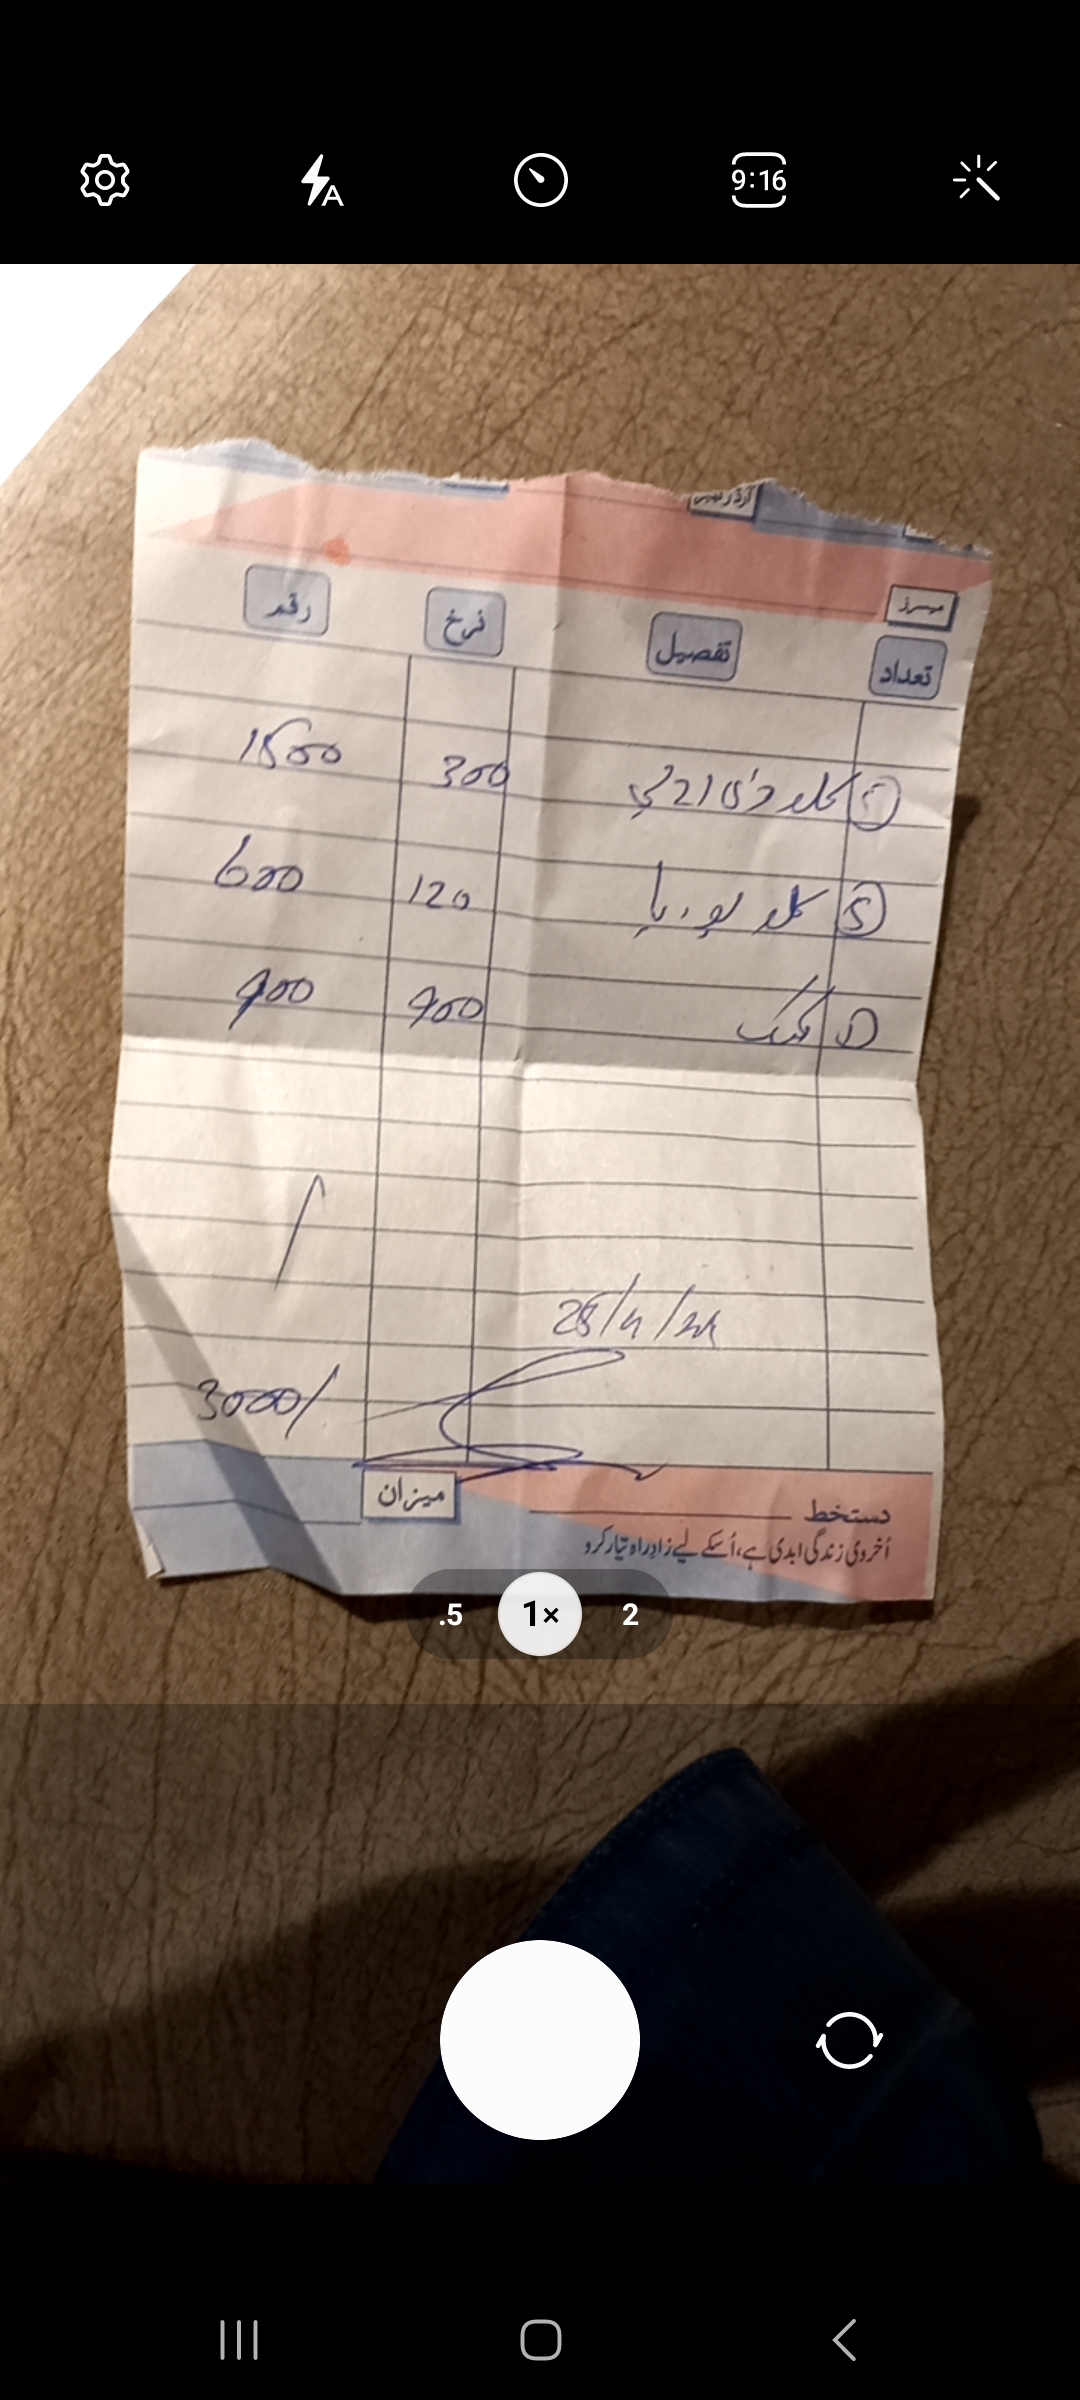 9:16
آرڈر نمبر
میسرز
تعداد تفصیل نرخ رقم
5 کلو ڈی اے پی 300 1500
5 کلو یوریا 120 600
1 900 900
28/4/24
3000/
میزان
دستخط
اُخروی زندگی ابدی ہے، اُسکے لیے زادِ راہ تیار کرو
.5 1× 2